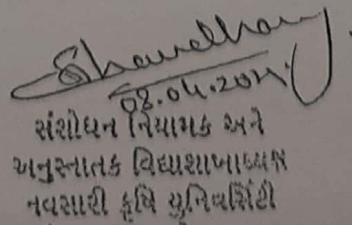 સંશોધન નિયામક અને
અનુસ્નાતક વિદ્યાશાખાધ્યક્ષ
નવસારી કૃષિ યુનિવર્સિટી